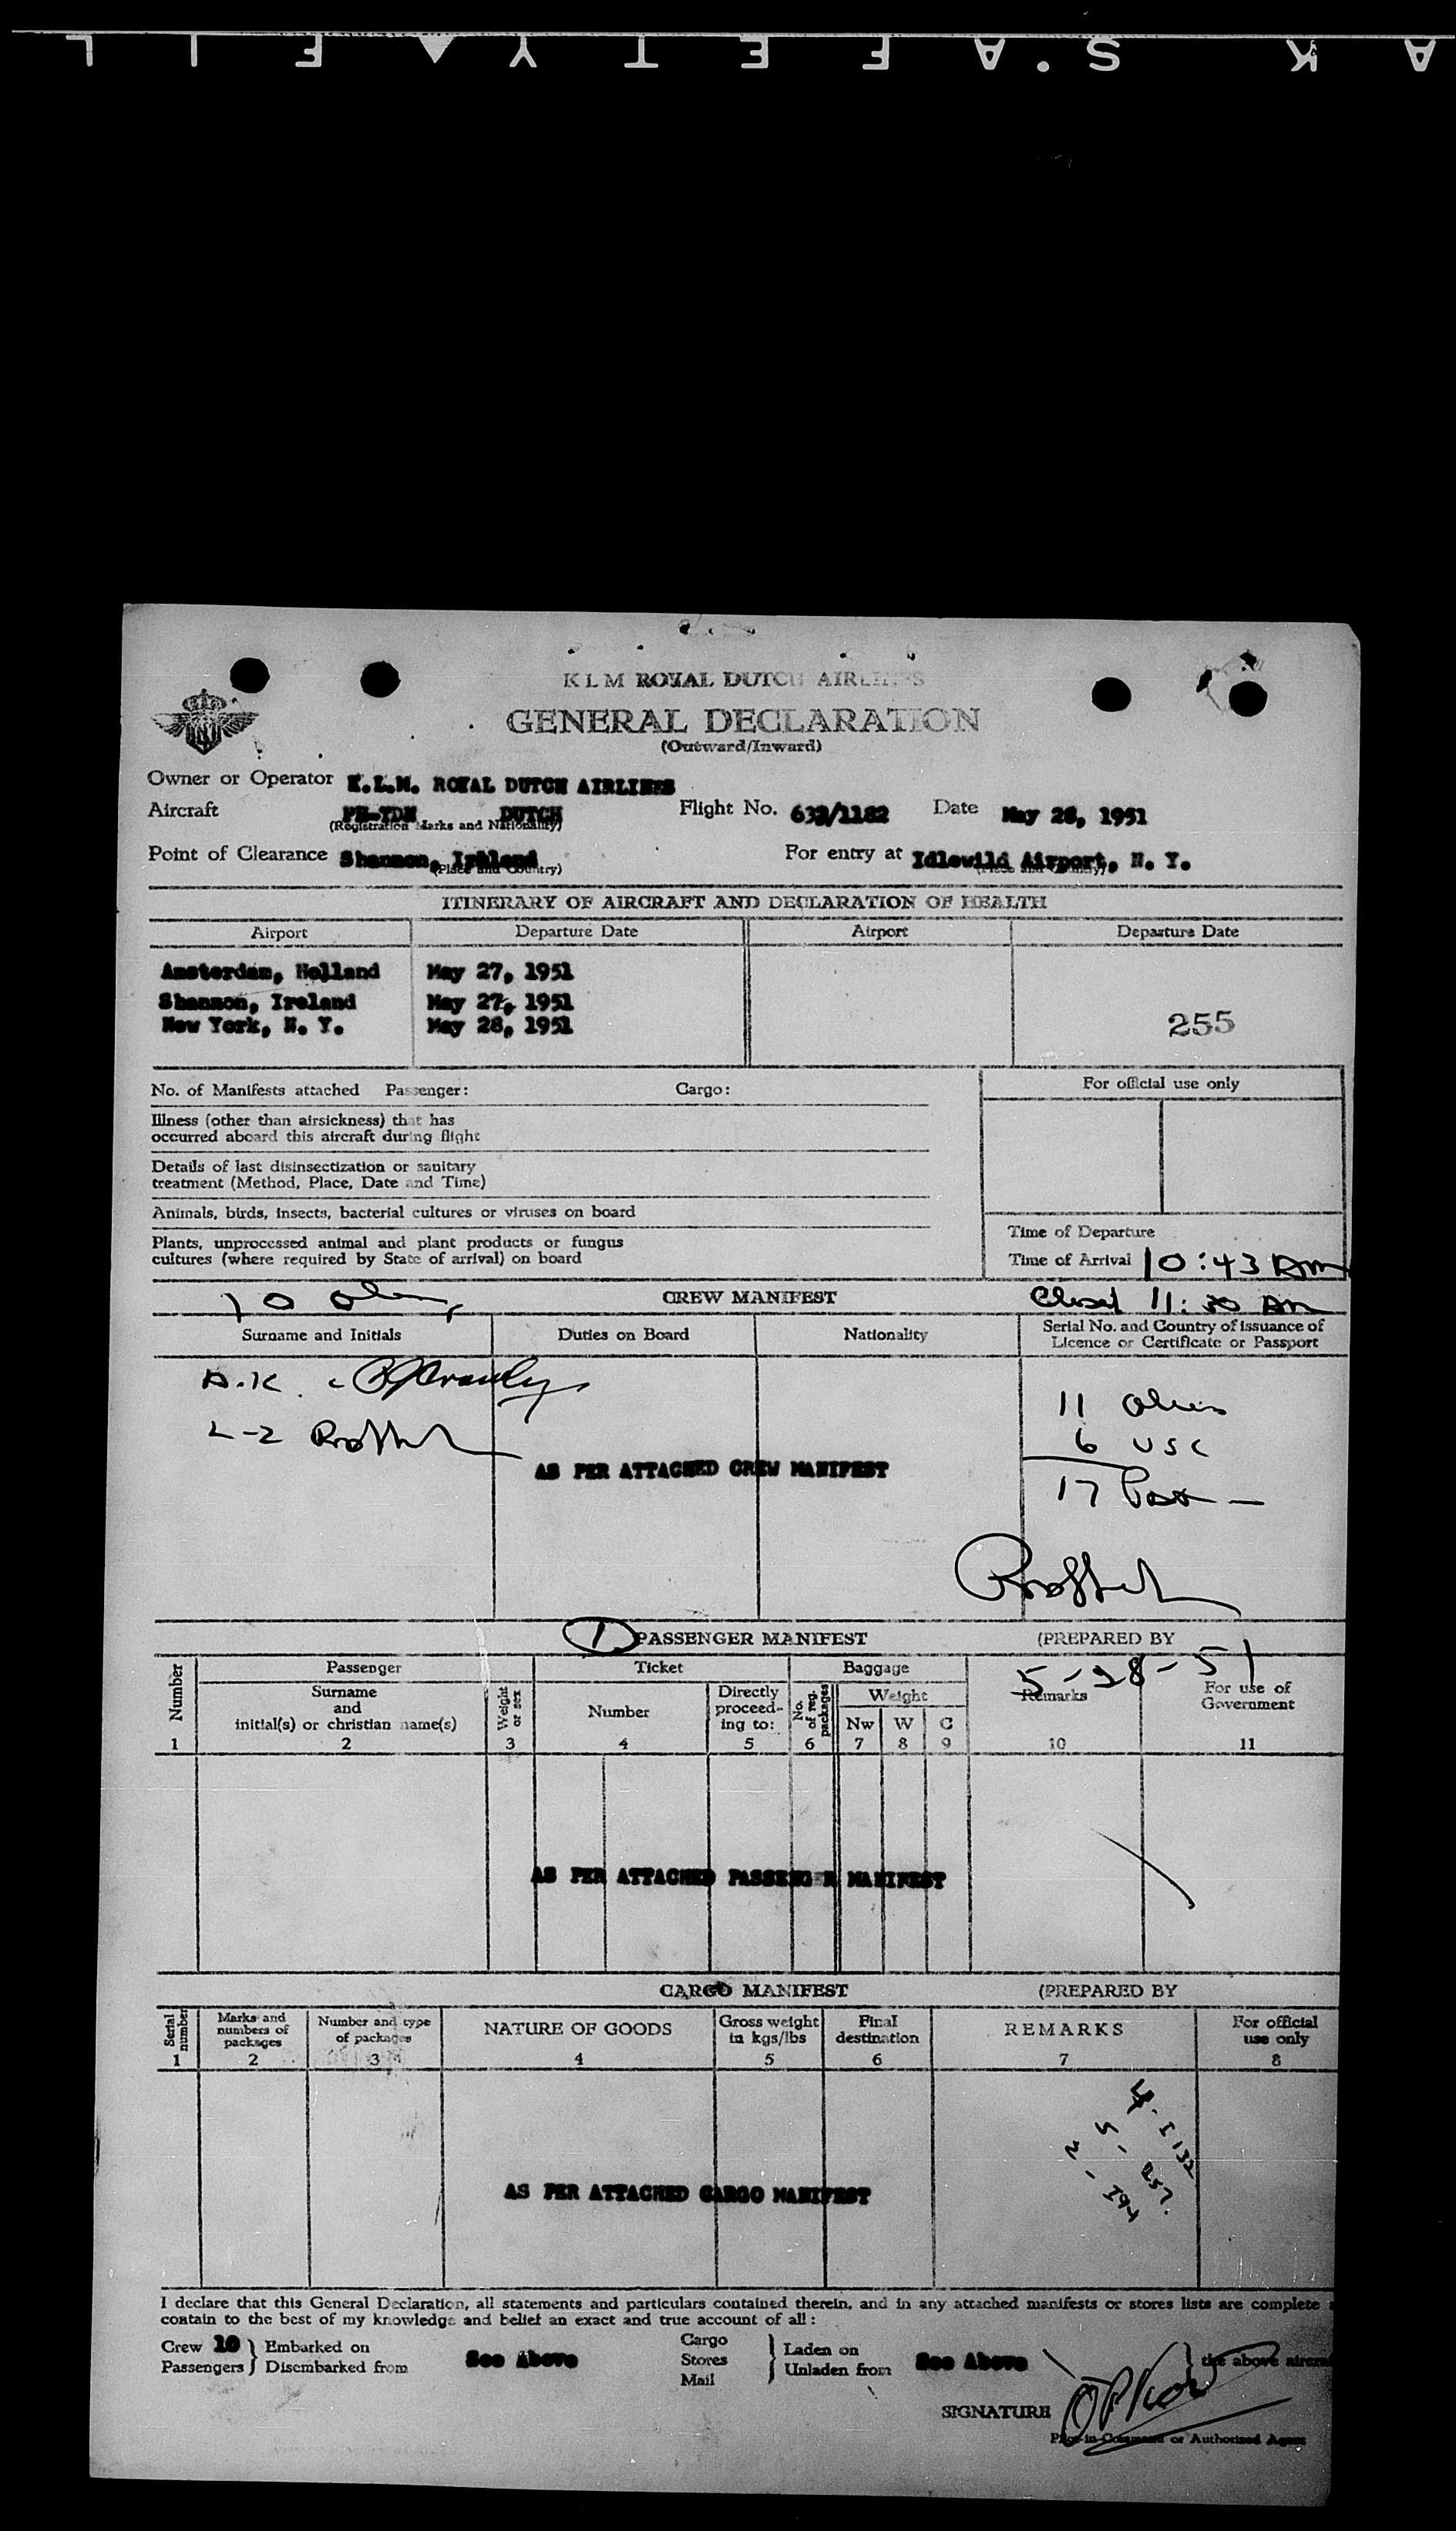 K L M ROYAL DUTCH AIRLINES
GENERAL DECLARATION
(Outward/Inward)
Owner or Operator K.L.M. ROYAL DUTCH AIRLINES
Aircraft PH-TDN DUTCH Flight No. 633/1182 Date May 28, 1951
(Registration Marks and Nationality)
Point of Clearance Shannon, Ireland For entry at Idlewild Airport, N. Y.
(Place and Country) (Place and Country)
ITINERARY OF AIRCRAFT AND DECLARATION OF HEALTH
Airport Departure Date Airport Departure Date
Amsterdam, Holland May 27, 1951
Shannon, Ireland May 27, 1951
New York, N. Y. May 28, 1951
255
No. of Manifests attached Passenger: Cargo: For official use only
Illness (other than airsickness) that has
occurred aboard this aircraft during flight
Details of last disinsectization or sanitary
treatment (Method, Place, Date and Time)
Animals, birds, insects, bacterial cultures or viruses on board
Time of Departure
Plants, unprocessed animal and plant products or fungus
cultures (where required by State of arrival) on board
Time of Arrival 10:43 AM
10 CREW MANIFEST Closed 11:30 AM
Surname and Initials Duties on Board Nationality Serial No. and Country of issuance of
Licence or Certificate or Passport
A.K.
L-2
11 aliens
6 USC
17 Pass
AS PER ATTACHED CREW MANIFEST
1 PASSENGER MANIFEST (PREPARED BY
5-28-51
Number Passenger Ticket Baggage
Surname
and
initial(s) or christian name(s)
Weight or sex
Number
Directly
proceed-
ing to:
No. of reg. packages
Weight
Nw W C
Remarks
For use of
Government
1 2 3 4 5 6 7 8 9 10 11
AS PER ATTACHED PASSENGER MANIFEST
CARGO MANIFEST (PREPARED BY
Serial number
Marks and
numbers of
packages
Number and type
of packages
NATURE OF GOODS
Gross weight
in kgs/lbs
Final
destination
REMARKS
For official
use only
1 2 3 4 5 6 7 8
4 - I 132
5 - 257.
2 - I94
AS PER ATTACHED CARGO MANIFEST
I declare that this General Declaration, all statements and particulars contained therein, and in any attached manifests or stores lists are complete
contain to the best of my knowledge and belief an exact and true account of all:
Crew 10 Embarked on
Passengers Disembarked from
See Above
Cargo
Stores
Mail
Laden on
Unladen from
See Above
the above aircraft
SIGNATURE
Pilot-in-Command or Authorized Agent